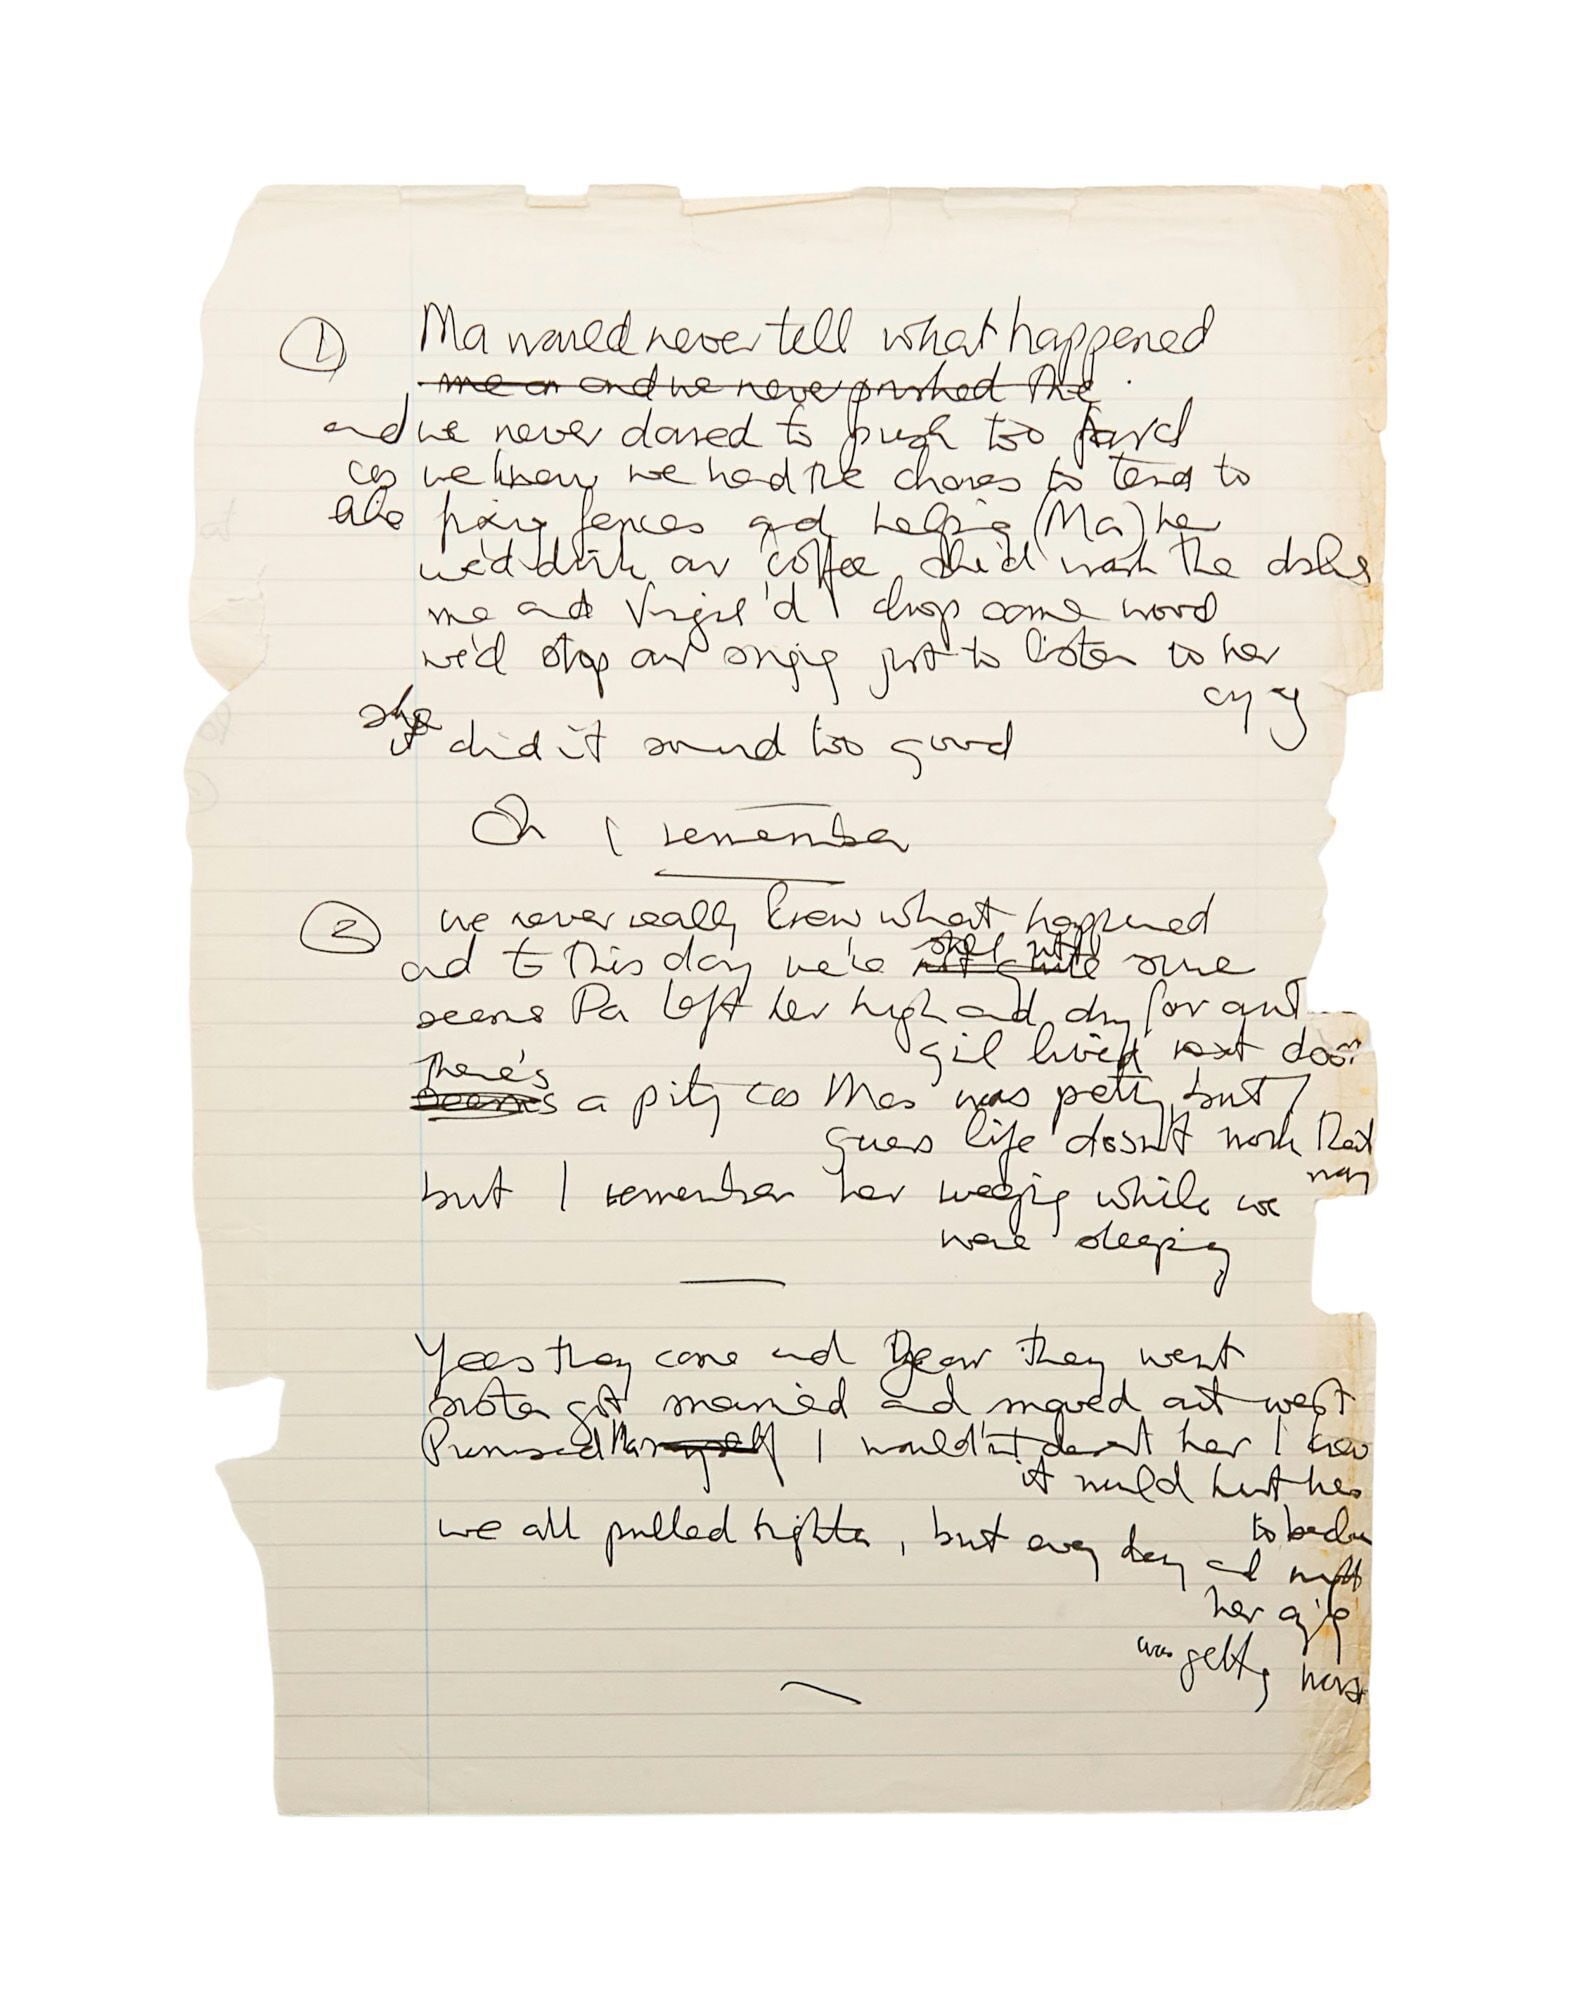 ① Ma would never tell what happened
me or and we never pushed the
and we never dared to push too hard
cos we knew we had the chores to tend to
like fixing fences and helping (Ma) her
we'd drink our coffee she'd wash the dishes
me and Virgil'd chop some wood
we'd stop our singing just to listen to her
crying
she
it did it sound too good
Oh I remember
② we never really knew what happened
still not
and to this day we're not quite sure
seems Pa left her high and dry for a
girl lived next door
There's
seems a pity cos Mas was pretty but I
guess life doesn't work that
way
but I remember her weeping while we
were sleeping
Years they came and Dear they went
sister got married and moved out west
Promised Ma myself I wouldn't desert her I knew
it would hurt her
to
we all pulled tighter, but every day and night
her crying
was getting worse